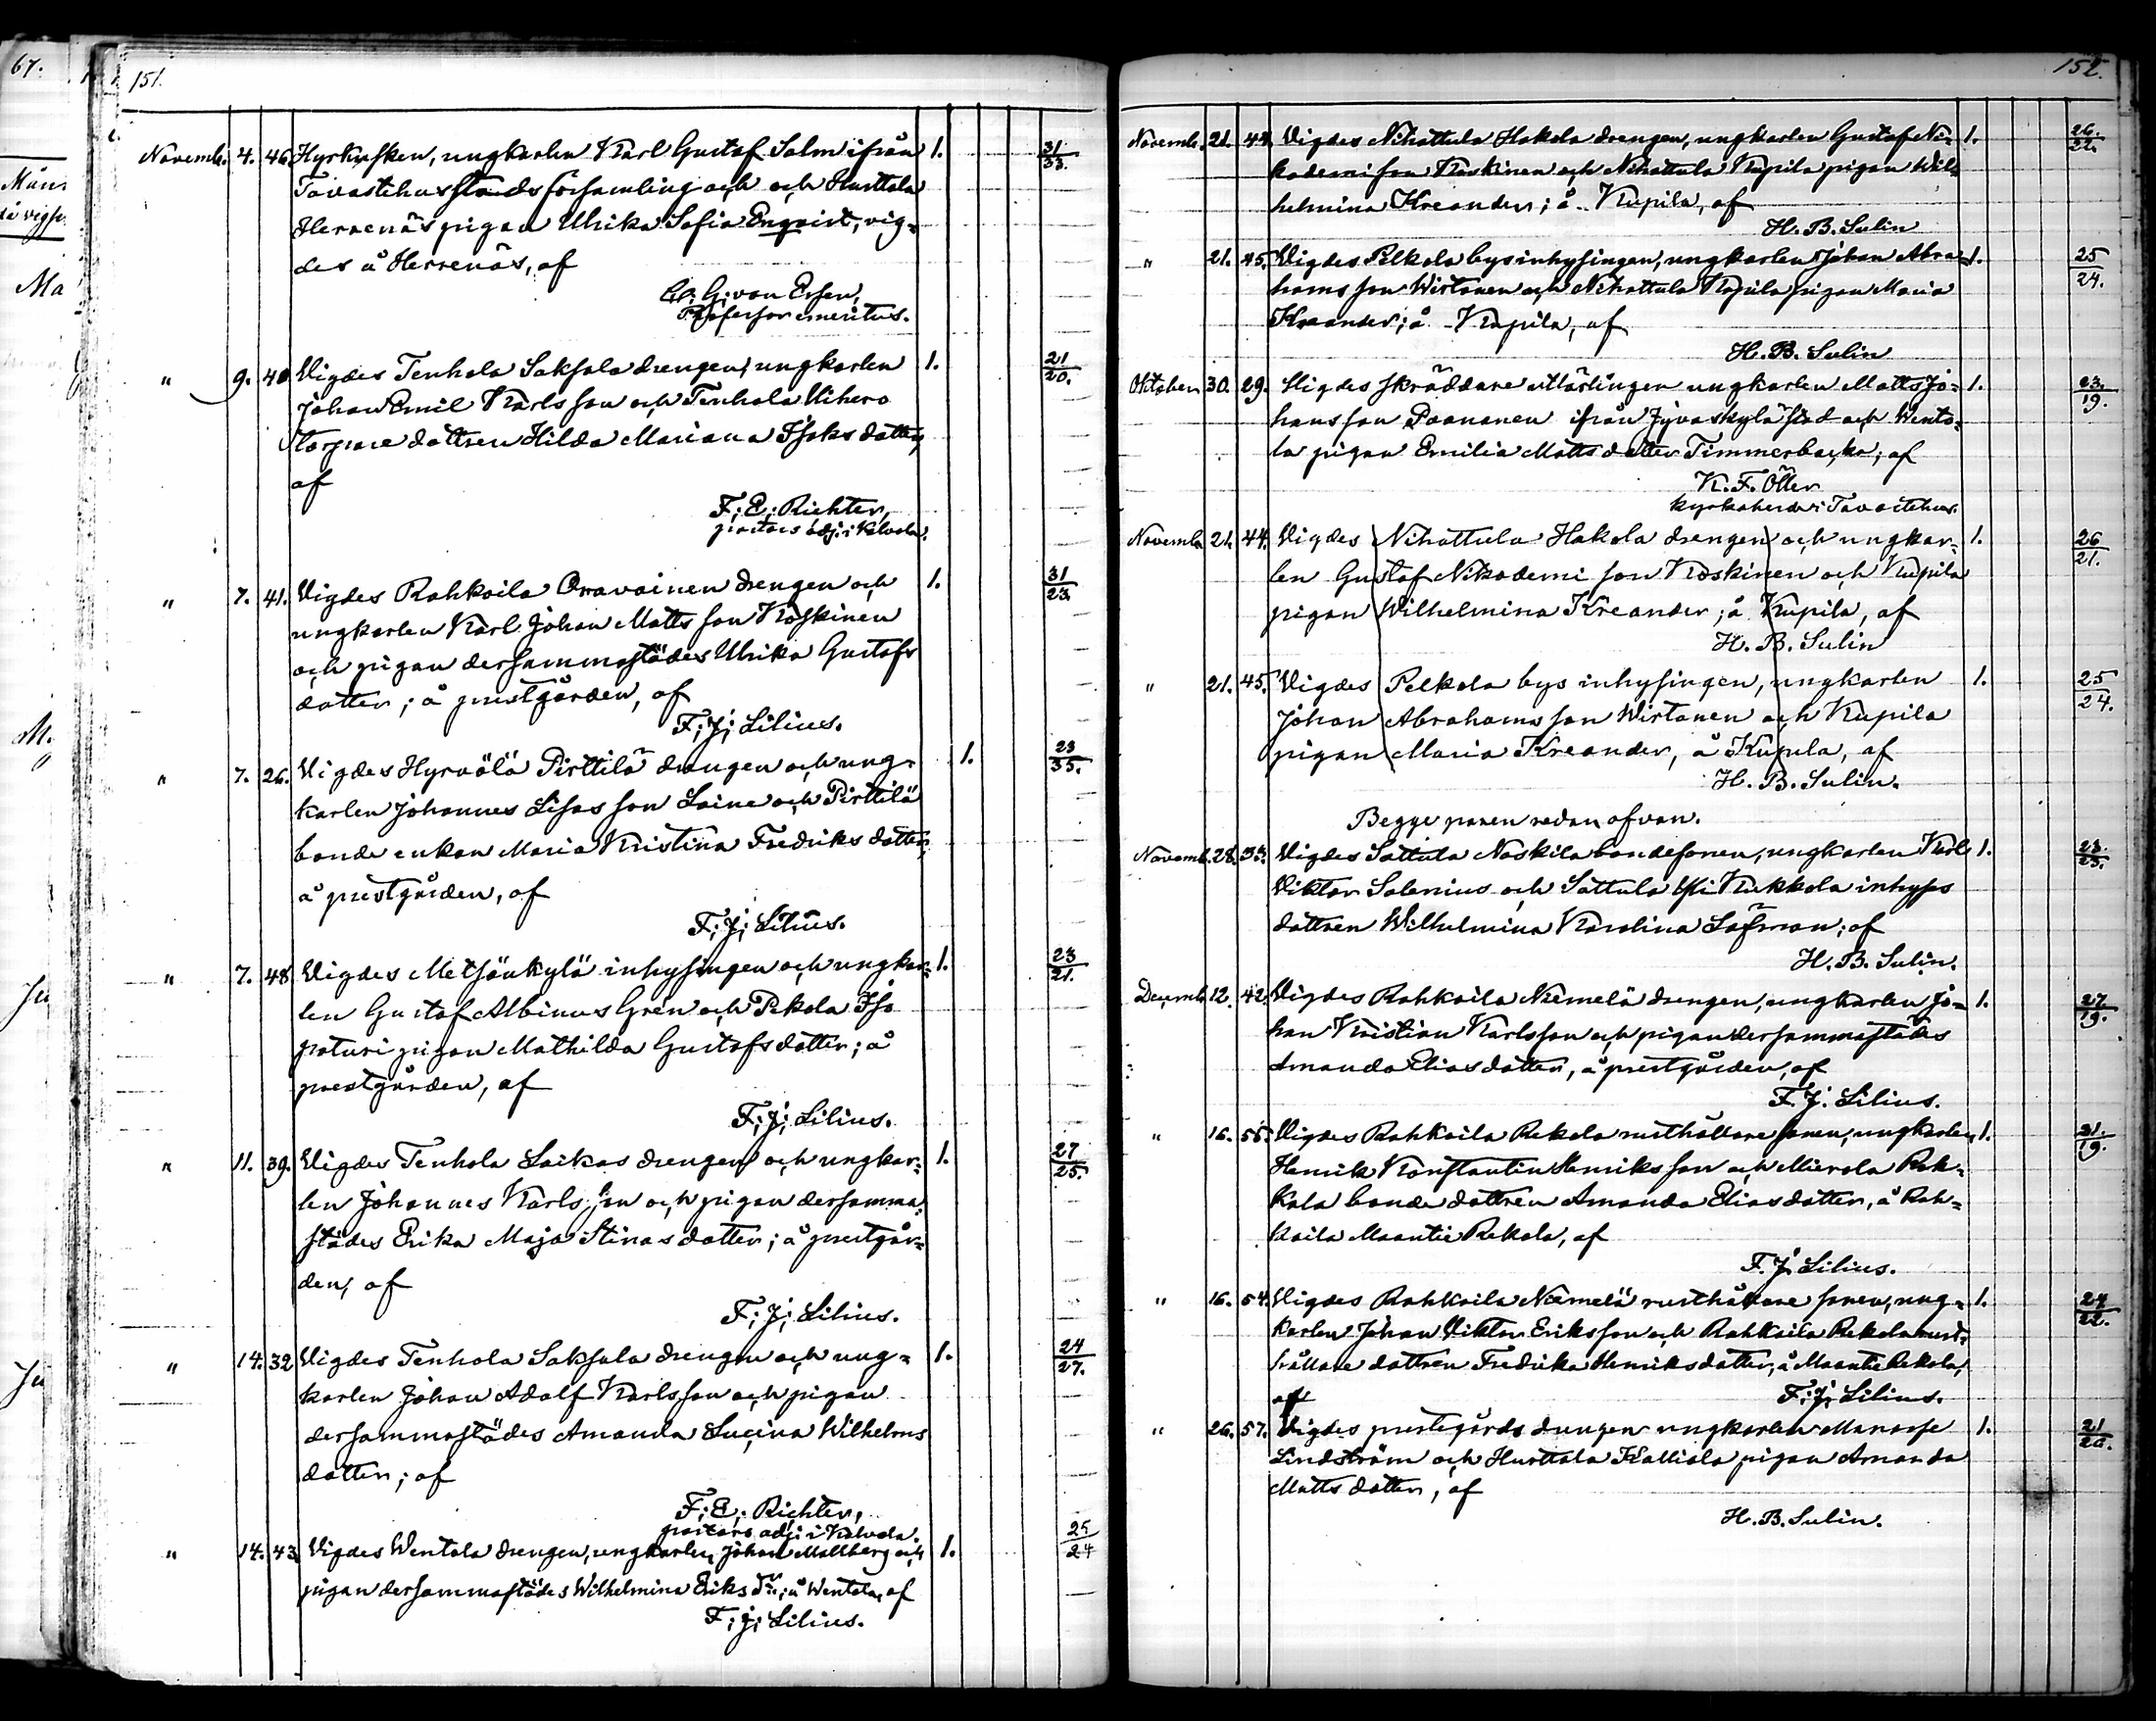 67.
151.
Novemb. 4. 46. Hyrkusken, ungkarlen Karl Gustaf Salm ifrån 1. 31/33.
Tavastehus stadsförsamling och och Hurttala
Herrenäs pigan Ulrika Sofia Enqvist, vig-
des å Herrenäs, af
G. von Essen,
Professor emeritus.
" 9. 40 Vigdes Tenhola Saksala drengen, ungkarlen 1. 21/20.
Johan Emil Karls son och Tenhola Uihero
torpare dottren Hilda Mariana Isaks dotter,
af
F. E. Richter,
pastors adj. i Kalvola.
" 7. 41. Vigdes Rahkoila Oravainen drengen och 1. 31/23.
ungkarlen Karl Johan Matts son Koskinen
och pigan dersammastädes Ulrika Gustafs
dotter; å prestgården, af
F. J. Lilius.
" 7. 26. Vigdes Hyrvälä Pirttilä drengen och ung- 1. 23/35.
karlen Johannes Lisas son Laine och Pirttilä
bonde enkan Maria Kristina Fredriks dotter,
å prestgården, af
F. J. Lilius.
" 7. 48 Vigdes Metsänkylä inhysingen och ungkar- 1. 23/21.
len Gustaf Albinus Grén och Pekola Iso
paturi pigan Mathilda Gustafs dotter; å
prestgården, af
F. J. Lilius.
" 11. 39. Vigdes Tenhola Laikas drengen och ungkar- 1. 27/25.
len Johannes Karls son och pigan dersamma-
städes Erika Maja Stinas dotter; å prestgår-
den, af
F. J. Lilius.
" 14. 32 Vigdes Tenhola Saksala drengen och ung- 1. 24/27.
karlen Johan Adolf Karlsson och pigan
dersammastädes Amanda Lucina Wilhelms
dotter; af
F. E. Richter,
pastors adj. i Kalvola.
" 14. 43. Vigdes Wentola drengen, ungkarlen Johan Mallberg och 1. 25/24
pigan dersammastädes Wilhelmina Eriks dr.; å Wentola, af
F. J. Lilius.
152.
Novemb. 21. 44. Vigdes Nihattula Hakola drengen, ungkarlen Gustaf Ni- 1. 26./21.
kodemi son Koskinen och Nihattula Kupila pigan Wil-
helmina Kreander; å Kupila, af
H. B. Sulin
" 21. 45. Vigdes Pelkola bys inhysingen, ungkarlen Johan Abra- 1. 25/24.
hams son Wirtanen och Nihattula Kupila pigan Maria
Kreander; å Kupila, af
H. B. Sulin
Oktober 30. 29. Vigdes skräddare utlärlingen ungkarlen Matts Jo- 1. 23./19.
hans son Paananen ifrån Jyväskylä stad och Wento-
la pigan Emilia Matts dotter Timmerbacka; af
K. F. Öller
kyrkoherde i Tavastehus.
Novemb. 21. 44. Vigdes Nihattula Hakola drengen och ungkar- 1. 26/21.
len Gustaf Nikodemi son Koskinen och Kupila
pigan Wilhelmina Kreander; å Kupila, af
H. B. Sulin
" 21. 45. Vigdes Pelkola bys inhysingen, ungkarlen 1. 25/24.
Johan Abrahams son Wirtanen och Kupila
pigan Maria Kreander, å Kupila, af
H. B. Sulin.
Begge paren redan ofvan.
Novemb. 28. 53. Vigdes Sattula Naskila bondesonen, ungkarlen Karl 1. 23./23.
Viktor Salenius och Sattula Yli Kukkola inhyses
dottren Wilhelmina Karolina Löfman; af
H. B. Sulin.
Decemb. 12. 42. Vigdes Rahkoila Niemelä drengen, ungkarlen Jo- 1. 27./19.
han Kristian Karlsson och pigan dersammastädes
Amanda Elias dotter, å prestgården, af
F. J. Lilius.
" 16. 55. Vigdes Rahkoila Rekola rusthållare sonen, ungkarlen 1. 21./19.
Henrik Konstantin Henriks son och Mierola Rek-
kola bonde dottren Amanda Elias dotter, å Rah-
koila Maantie Rekola, af
F. J. Lilius.
" 16. 54. Vigdes Rahkoila Niemelä rusthållare sonen, ung- 1. 24/22.
karlen Johan Viktor Eriks son och Rahkoila Rekola rust-
hållare dottren Fredrika Henriks dotter, å Maantie Rekola,
af F. J. Lilius.
" 26. 57. Vigdes prestgårds drengen ungkarlen Manasse 1. 21/20.
Lindström och Hurttala Kalliola pigan Amanda
Matts dotter, af
H. B. Sulin.